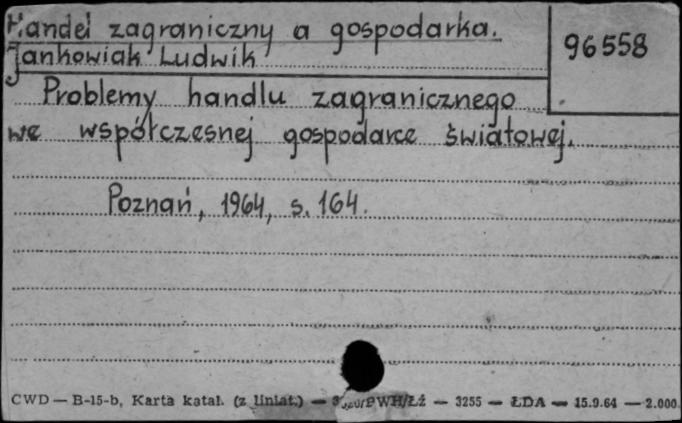 Handel zagraniczny a gospodarka.
96558
Jankowiak Ludwik
Problemy handlu zagranicznego
we współczesnej gospodarce światowej.
Poznań, 1964, s. 164.
CWD — B-15-b, Karta katal. (z liniat.) — PWH/Łź — 3255 — ŁDA — 15.9.64 — 2.000